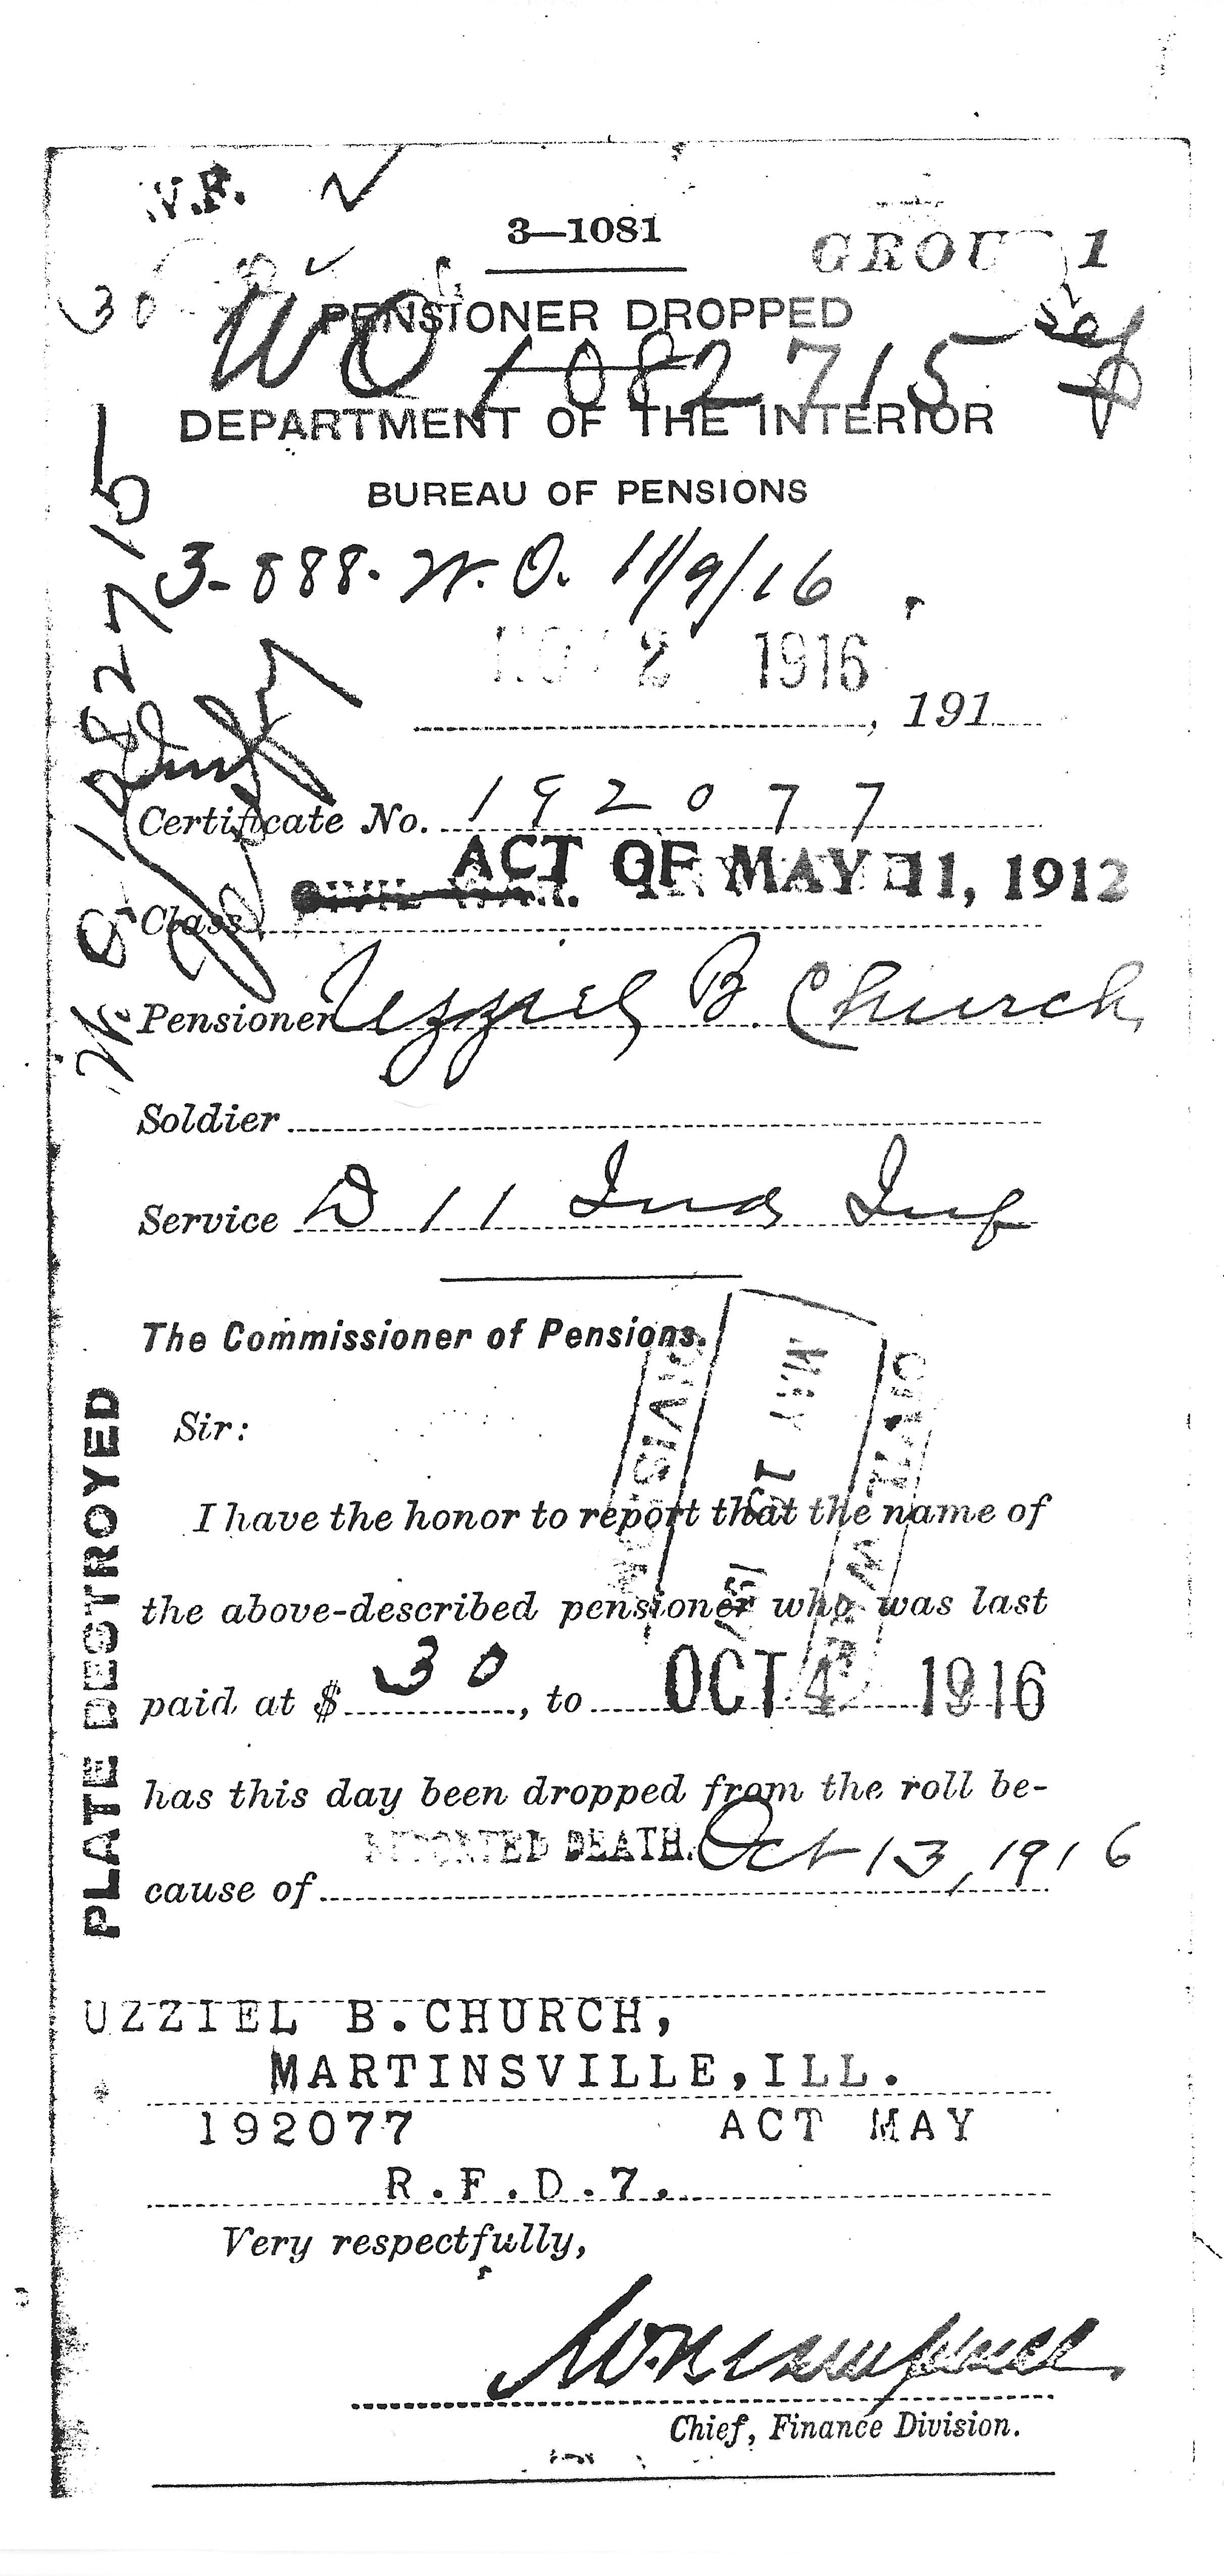 3—1081
GROU 1
PENSIONER DROPPED
WO 1082715
DEPARTMENT OF THE INTERIOR
BUREAU OF PENSIONS
3-888. W. O. 11/9/16
W. O. 1082715
NOV 2 1916
, 191
Certificate No. 192077
ACT OF MAY 11, 1912
CIVIL WAR.
Class
Pensioner Uzziel B. Church,
Soldier
Service D 11 Ind Inf
The Commissioner of Pensions.
Sir:
CIVIL WAR
DIVISION
I have the honor to report that the name of
the above-described pensioner who was last
paid at $ 30, to OCT 4 1916
has this day been dropped from the roll be-
cause of REPORTED DEATH. Oct 13, 1916
PLATE DESTROYED
UZZIEL B.CHURCH,
MARTINSVILLE,ILL.
192077 ACT MAY
R.F.D.7.
Very respectfully,
Chief, Finance Division.